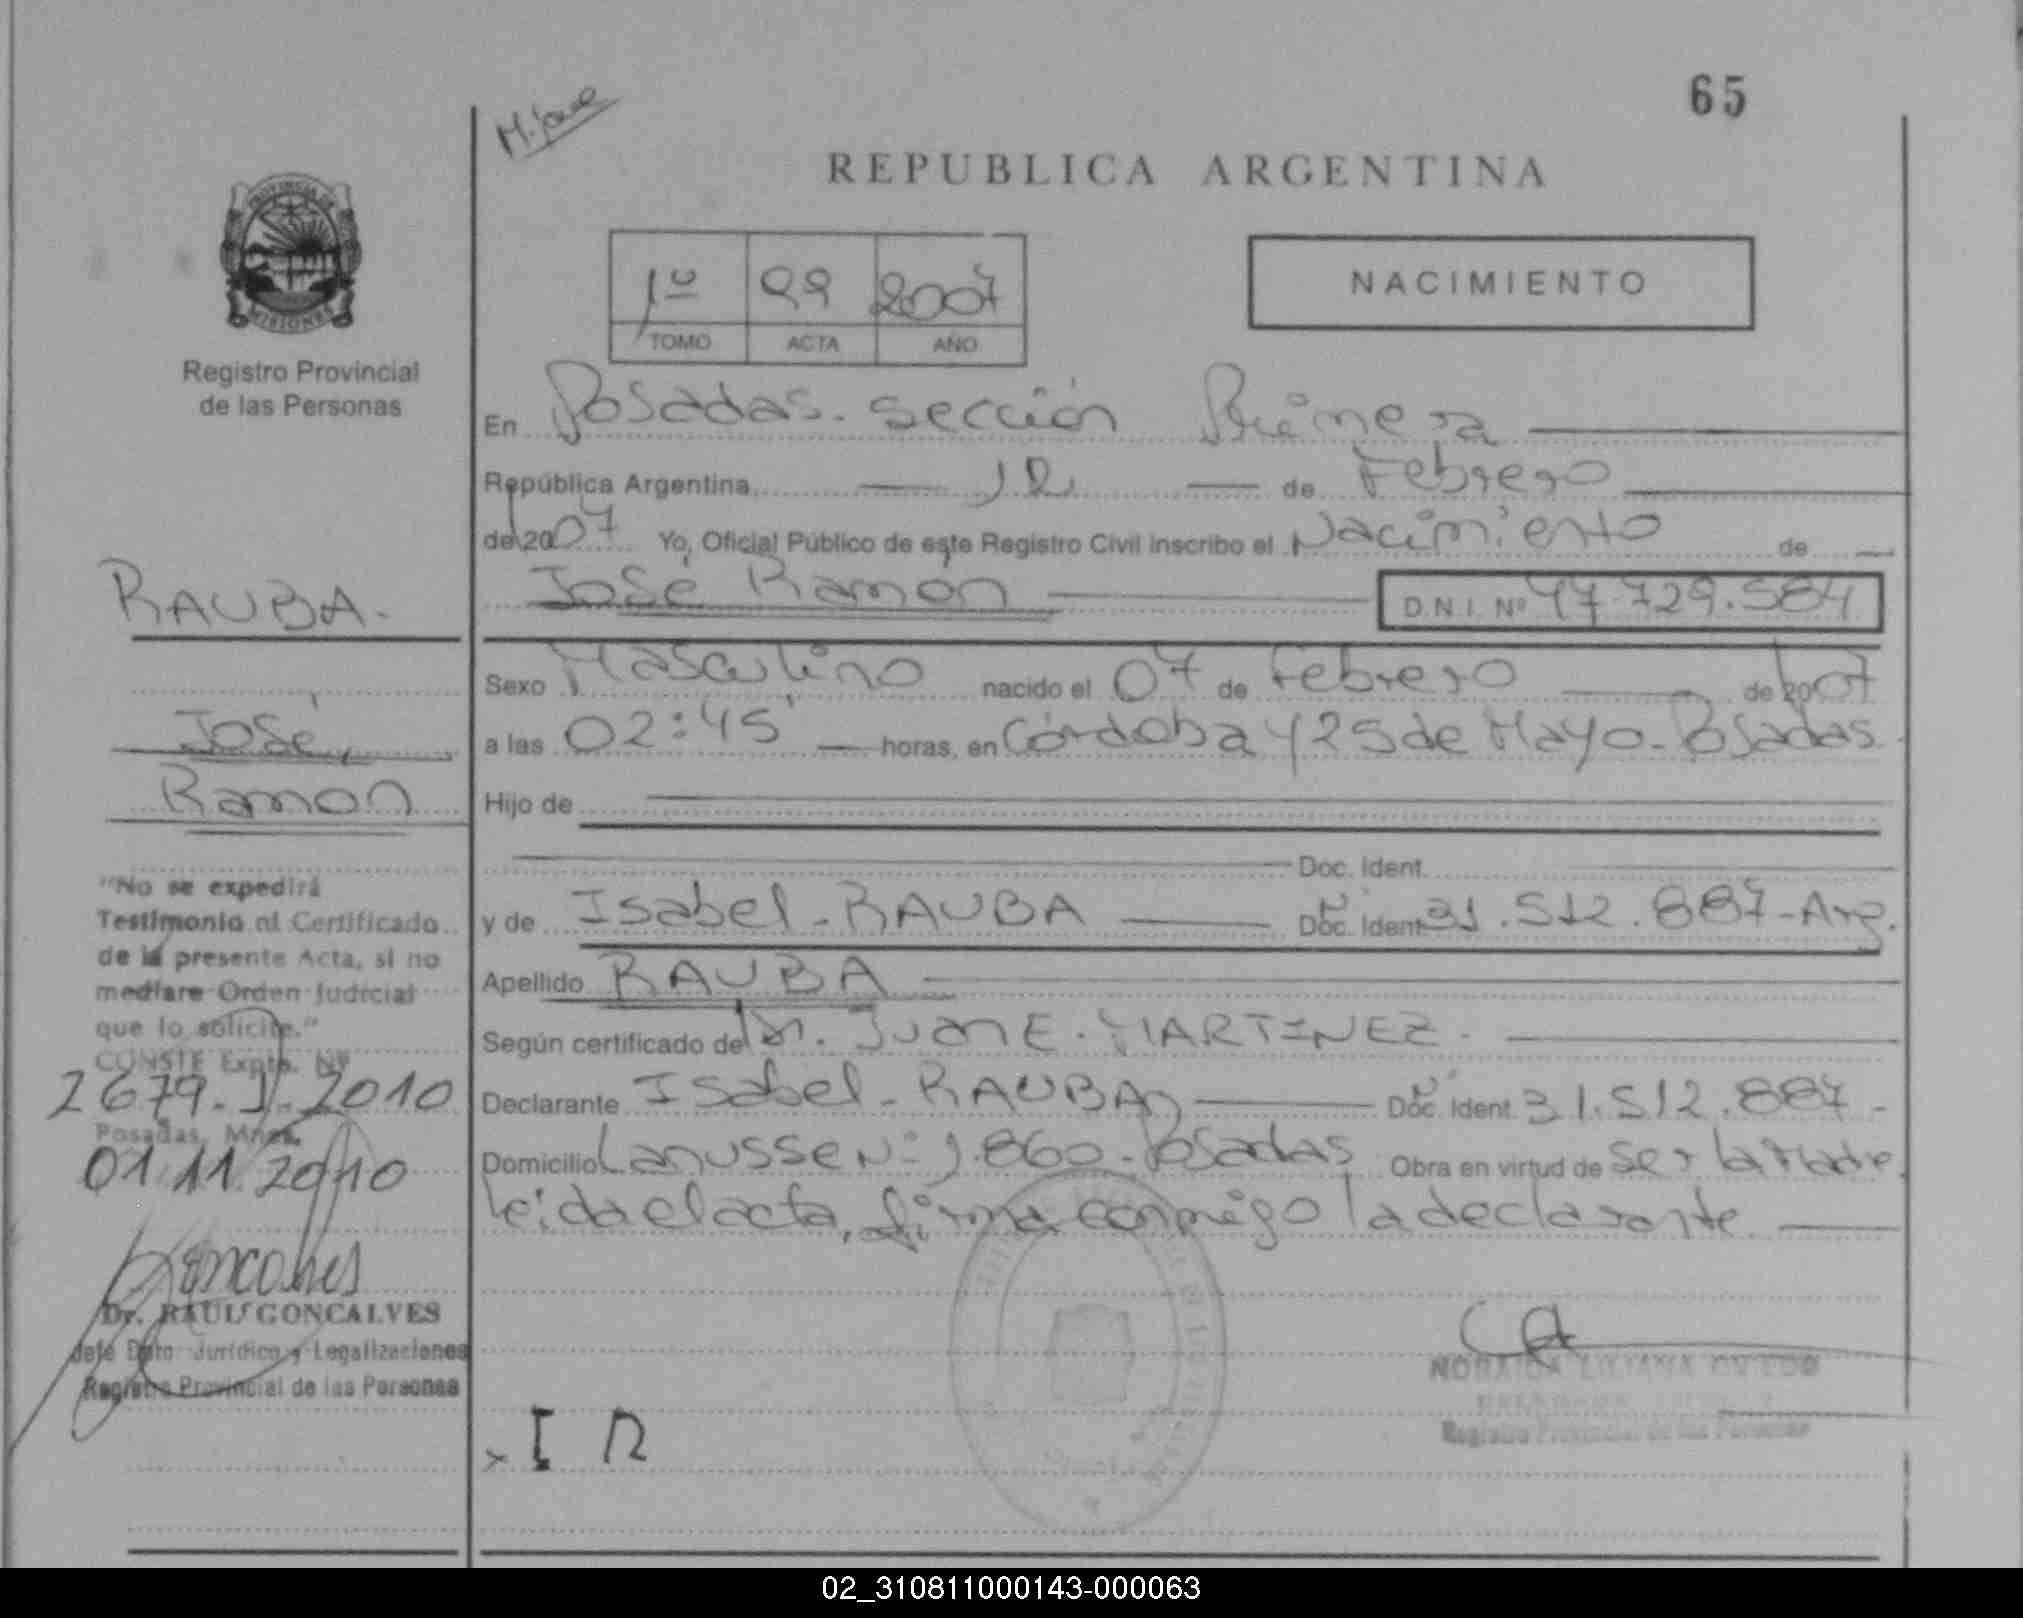 65
M. jose
REPUBLICA ARGENTINA
PROVINCIA DE
MISIONES
Registro Provincial
de las Personas
1º 99 2007
TOMO ACTA AÑO
NACIMIENTO
En Posadas. sección Primera
República Argentina, 12 de Febrero
de 2007 Yo, Oficial Público de este Registro Civil inscribo el Nacimiento de
José Ramón D.N.I. Nº 47.729.584
Sexo Masculino nacido el 07 de Febrero de 2007
a las 02:45' horas, en Córdoba y 25 de Mayo. Posadas.
Hijo de
Doc. Ident.
y de Isabel - RAUBA Doc. Ident. Nº 31.512.887 - Arg.
Apellido RAUBA
Según certificado de Dr. Juan E. MARTINEZ.
Declarante Isabel - RAUBA Doc. Ident. Nº 31.512.887 -
Domicilio Lanusse Nº 1.860 - Posadas Obra en virtud de ser la Madre
leida el acta, firma conmigo la declarante
RAUBA.
José,
Ramón
"No se expedirá
Testimonio ni Certificado
de la presente Acta, si no
mediare Orden Judicial
que lo solicite."
CONSTE Expte. Nº
2679. J. 2010
Posadas, Mnes.
01.11.2010
Dr. RAUL GONCALVES
Jefe Dpto. Jurídico y Legalizaciones
Registro Provincial de las Personas
x I R
NORAIDA LILIANA OVIEDO
Registro Provincial de las Personas
02_310811000143-000063